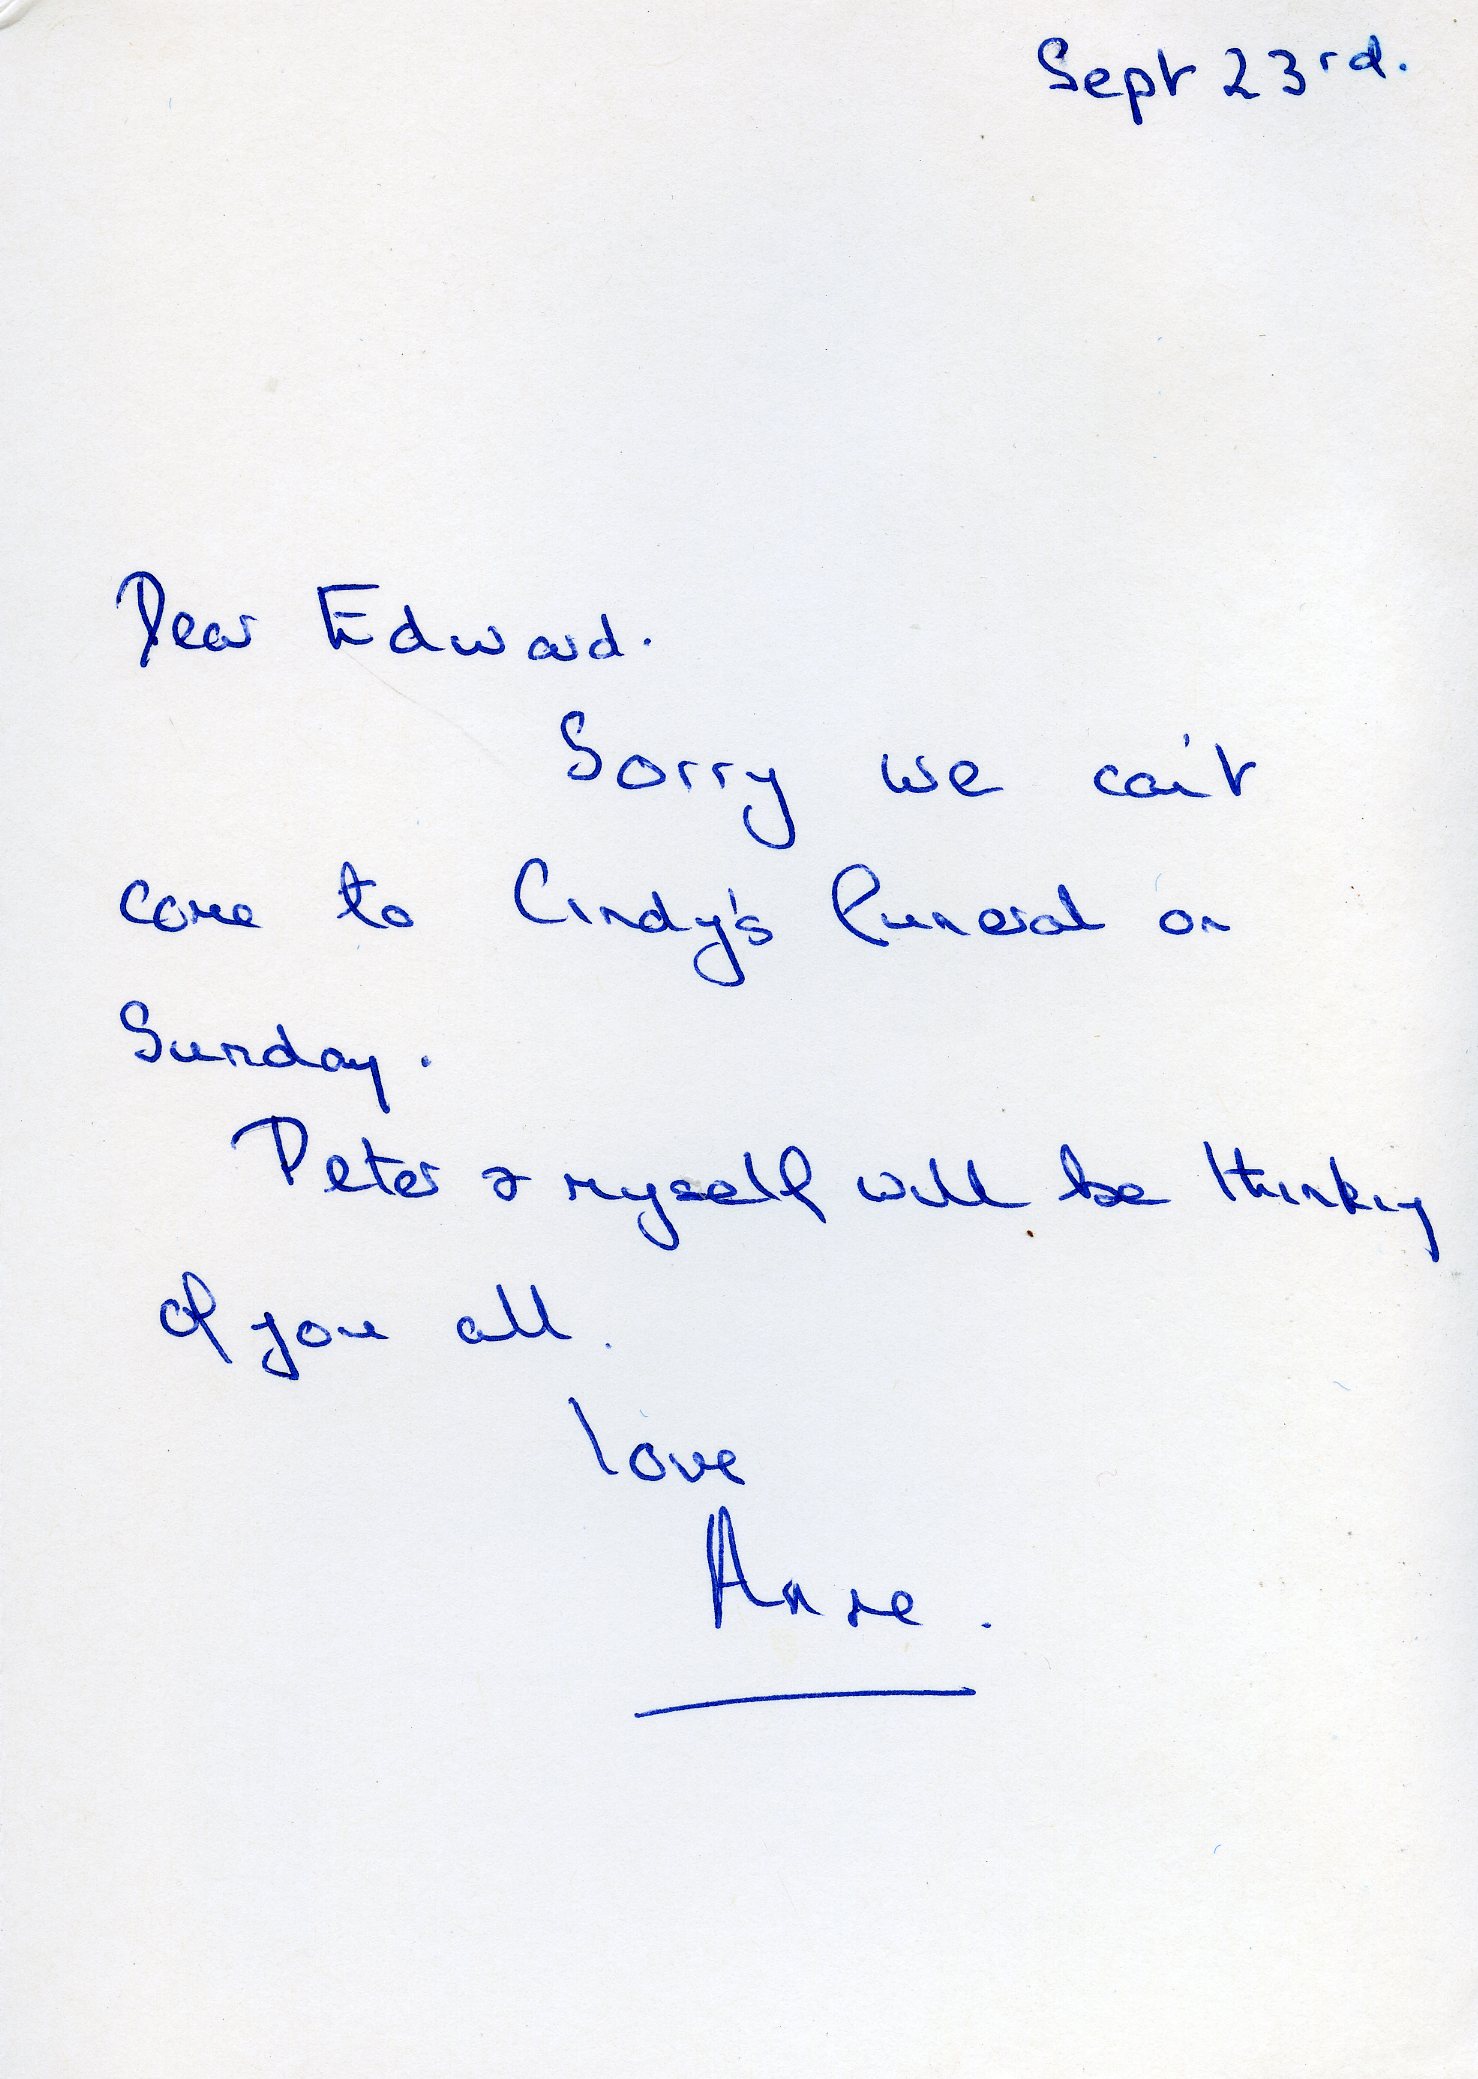 Sept 23rd.
Dear Edward.
Sorry we can't
come to Cindy's funeral on
Sunday.
Peter & myself will be thinking
of you all.
love
Anne.